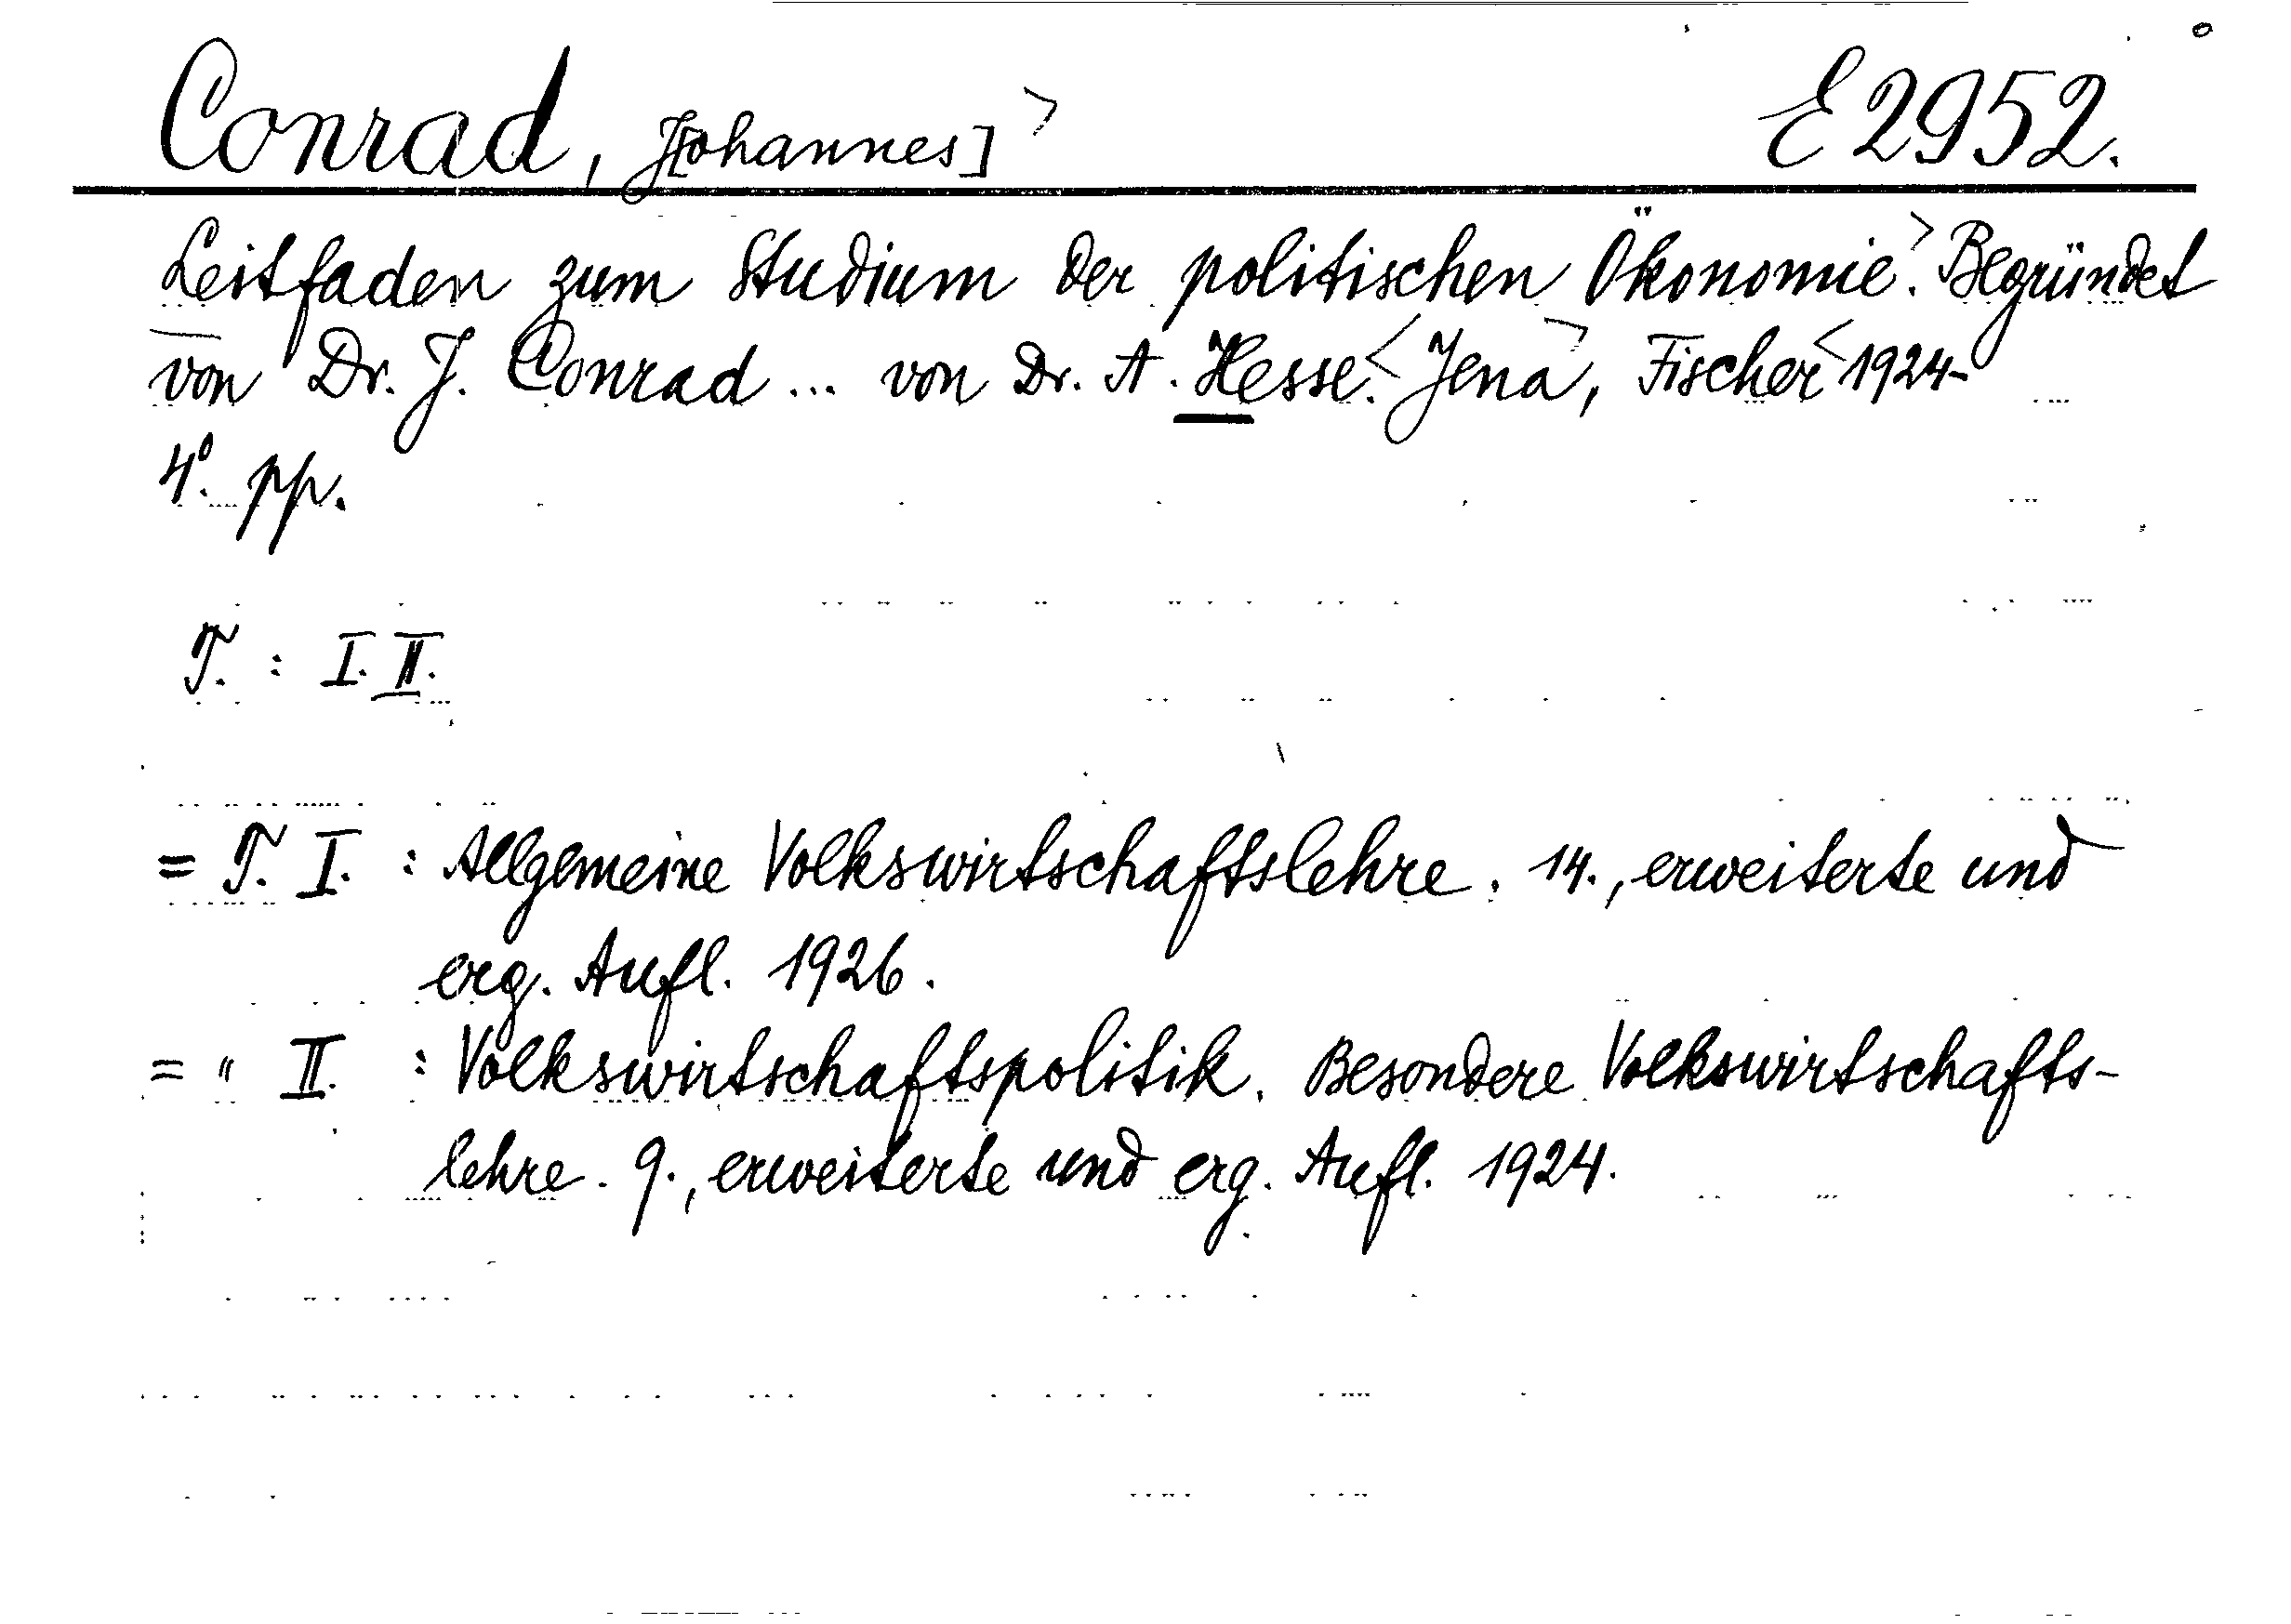 Conrad, J[ohannes] > E 2952.
Leitfaden zum Studium der politischen Ökonomie.> Begründet
von Dr. J. Conrad ... von Dr. A. Hesse.< Jena>, Fischer< 1924-
4°. pp.
T. : I. II.
= T. I. : Allgemeine Volkswirtschaftslehre. 14., erweiterte und
erg. Aufl. 1926.
= " II. : Volkswirtschaftspolitik. Besondere Volkswirtschafts-
lehre. 9., erweiterte und erg. Aufl. 1924.